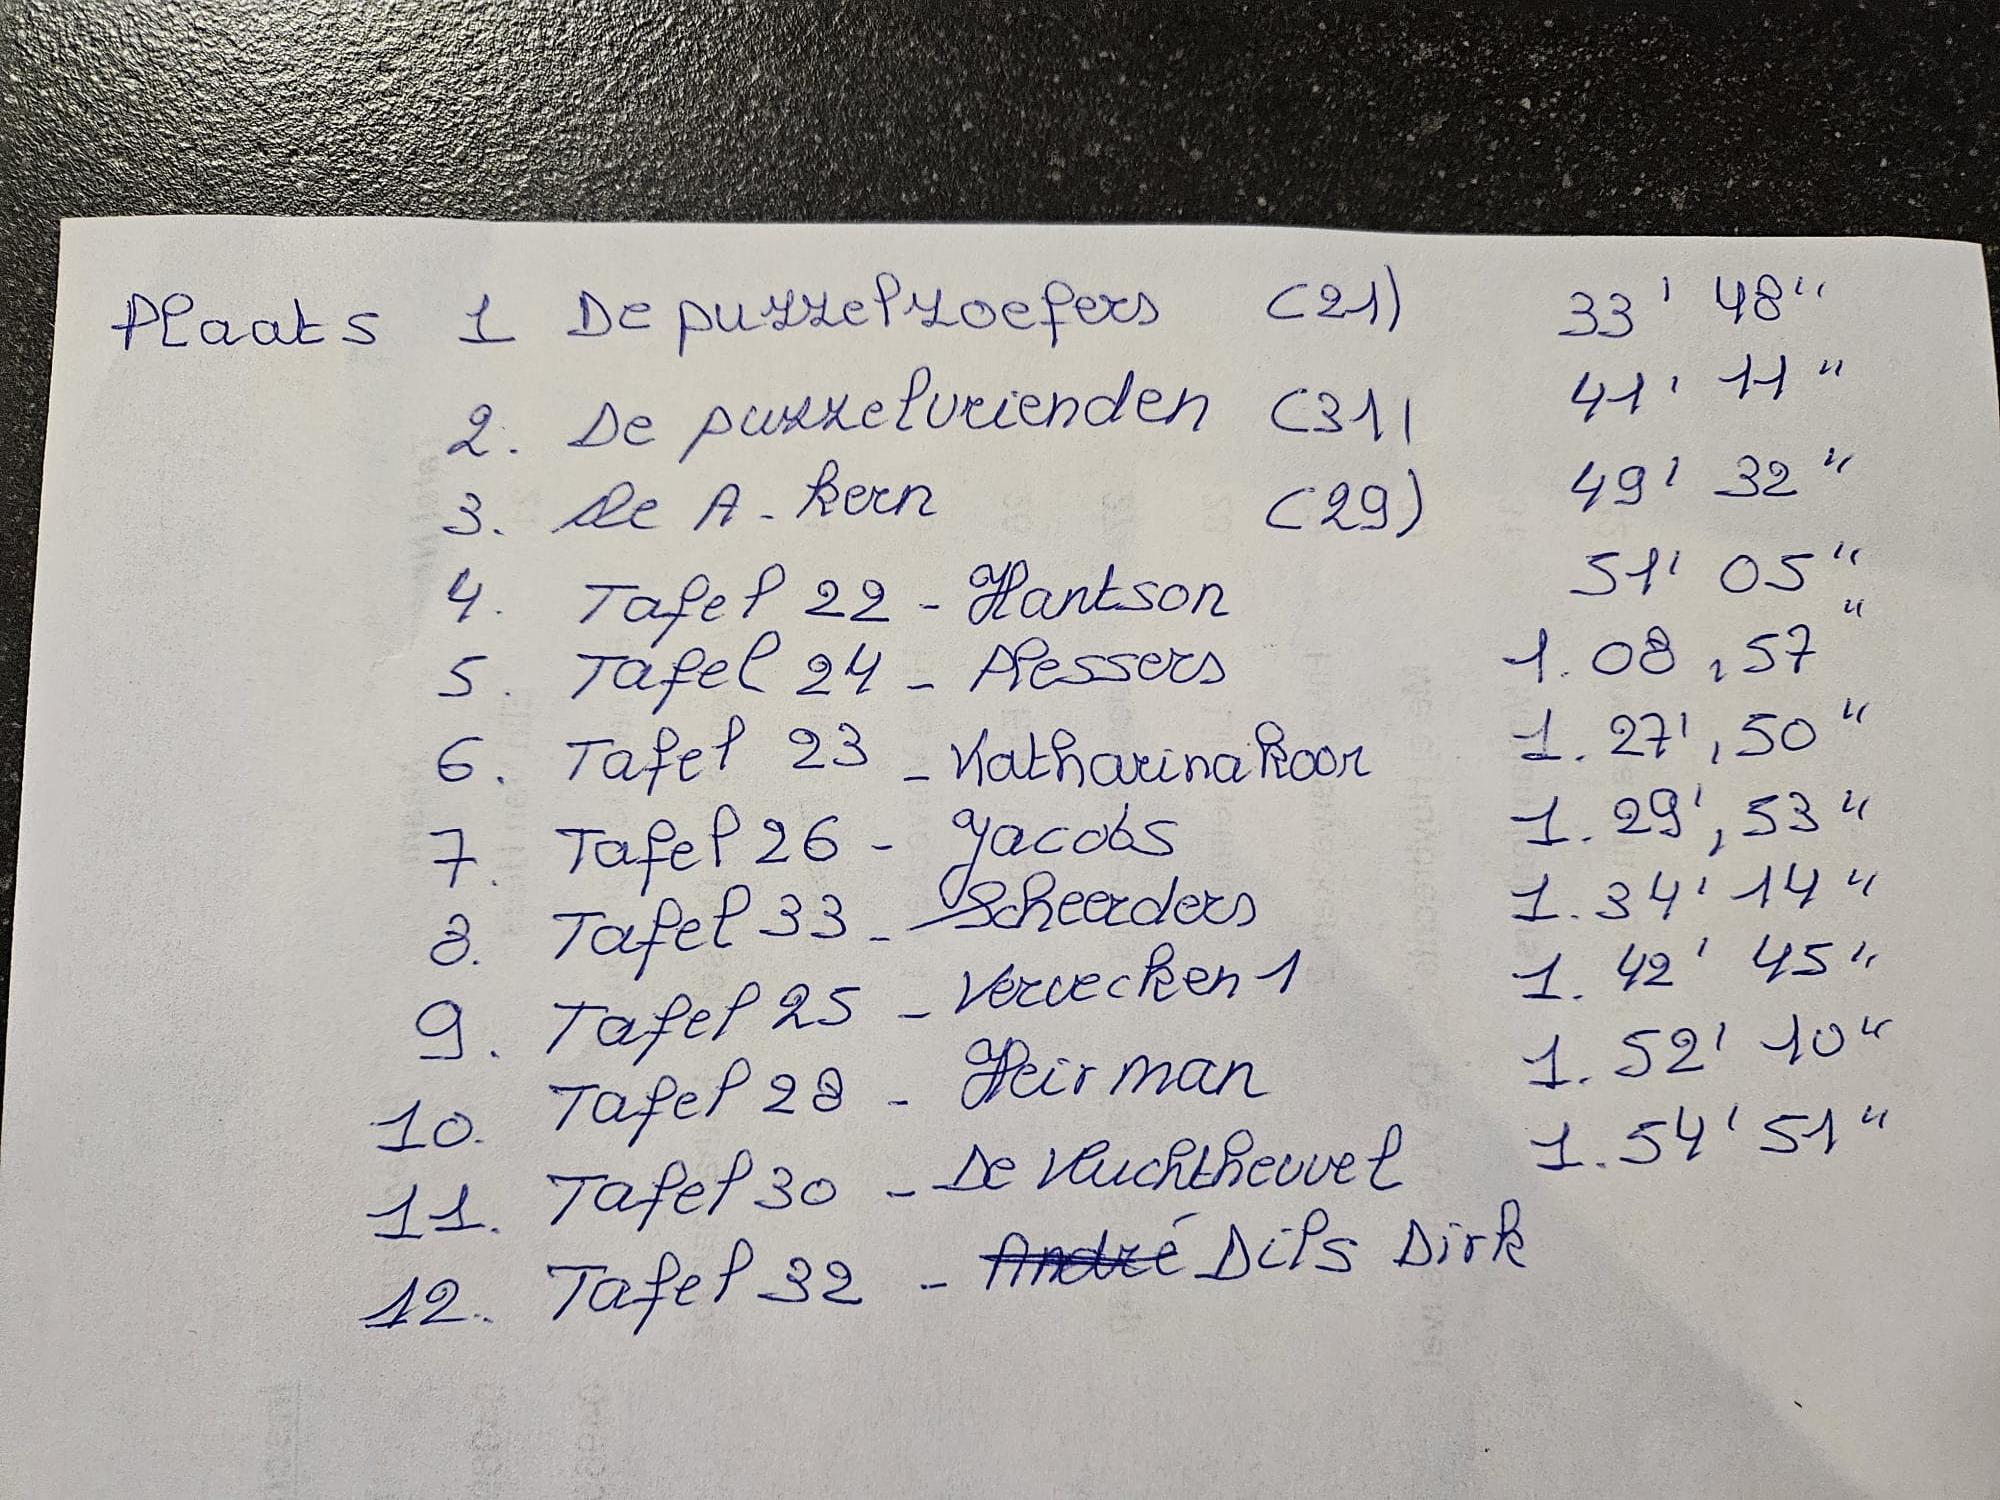 Plaats 1 De puzzelzoefers (21) 33' 48"
2. De puzzelvrienden (31) 41' 11"
3. De A-kern (29) 49' 32"
4. Tafel 22 - Hantson 51' 05"
5. Tafel 24 - Plessers 1. 08, 57"
6. Tafel 23 - Katharinakoor 1. 27', 50"
7. Tafel 26 - Jacobs 1. 29', 53"
8. Tafel 33 - Scheerders 1. 34' 14"
9. Tafel 25 - Ververcken 1 1. 42' 45"
10. Tafel 28 - Heirman 1. 52' 10"
11. Tafel 30 - De Vluchtheuvel 1. 54' 51"
12. Tafel 32 - André Dils Dirk